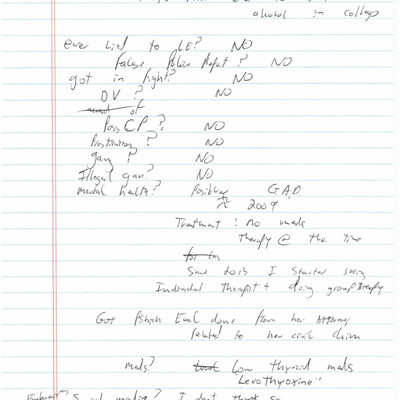 alcohol in college
ever lied to LE? NO
False Police Report? NO
got in fight? NO
DV? NO
of
Poss CP? NO
Prostitution? NO
gang? NO
Illegal gun? NO
mental health? Possibly GAD
≈ 2009
Treatment: no meds
therapy @ the time
Same docs I started seeing
Individual Therapist + doing group therapy
Got Psych Eval done from her Attorney
related to her civil claim
meds? Low thyroid meds
Levothyroxine"
I don't think so